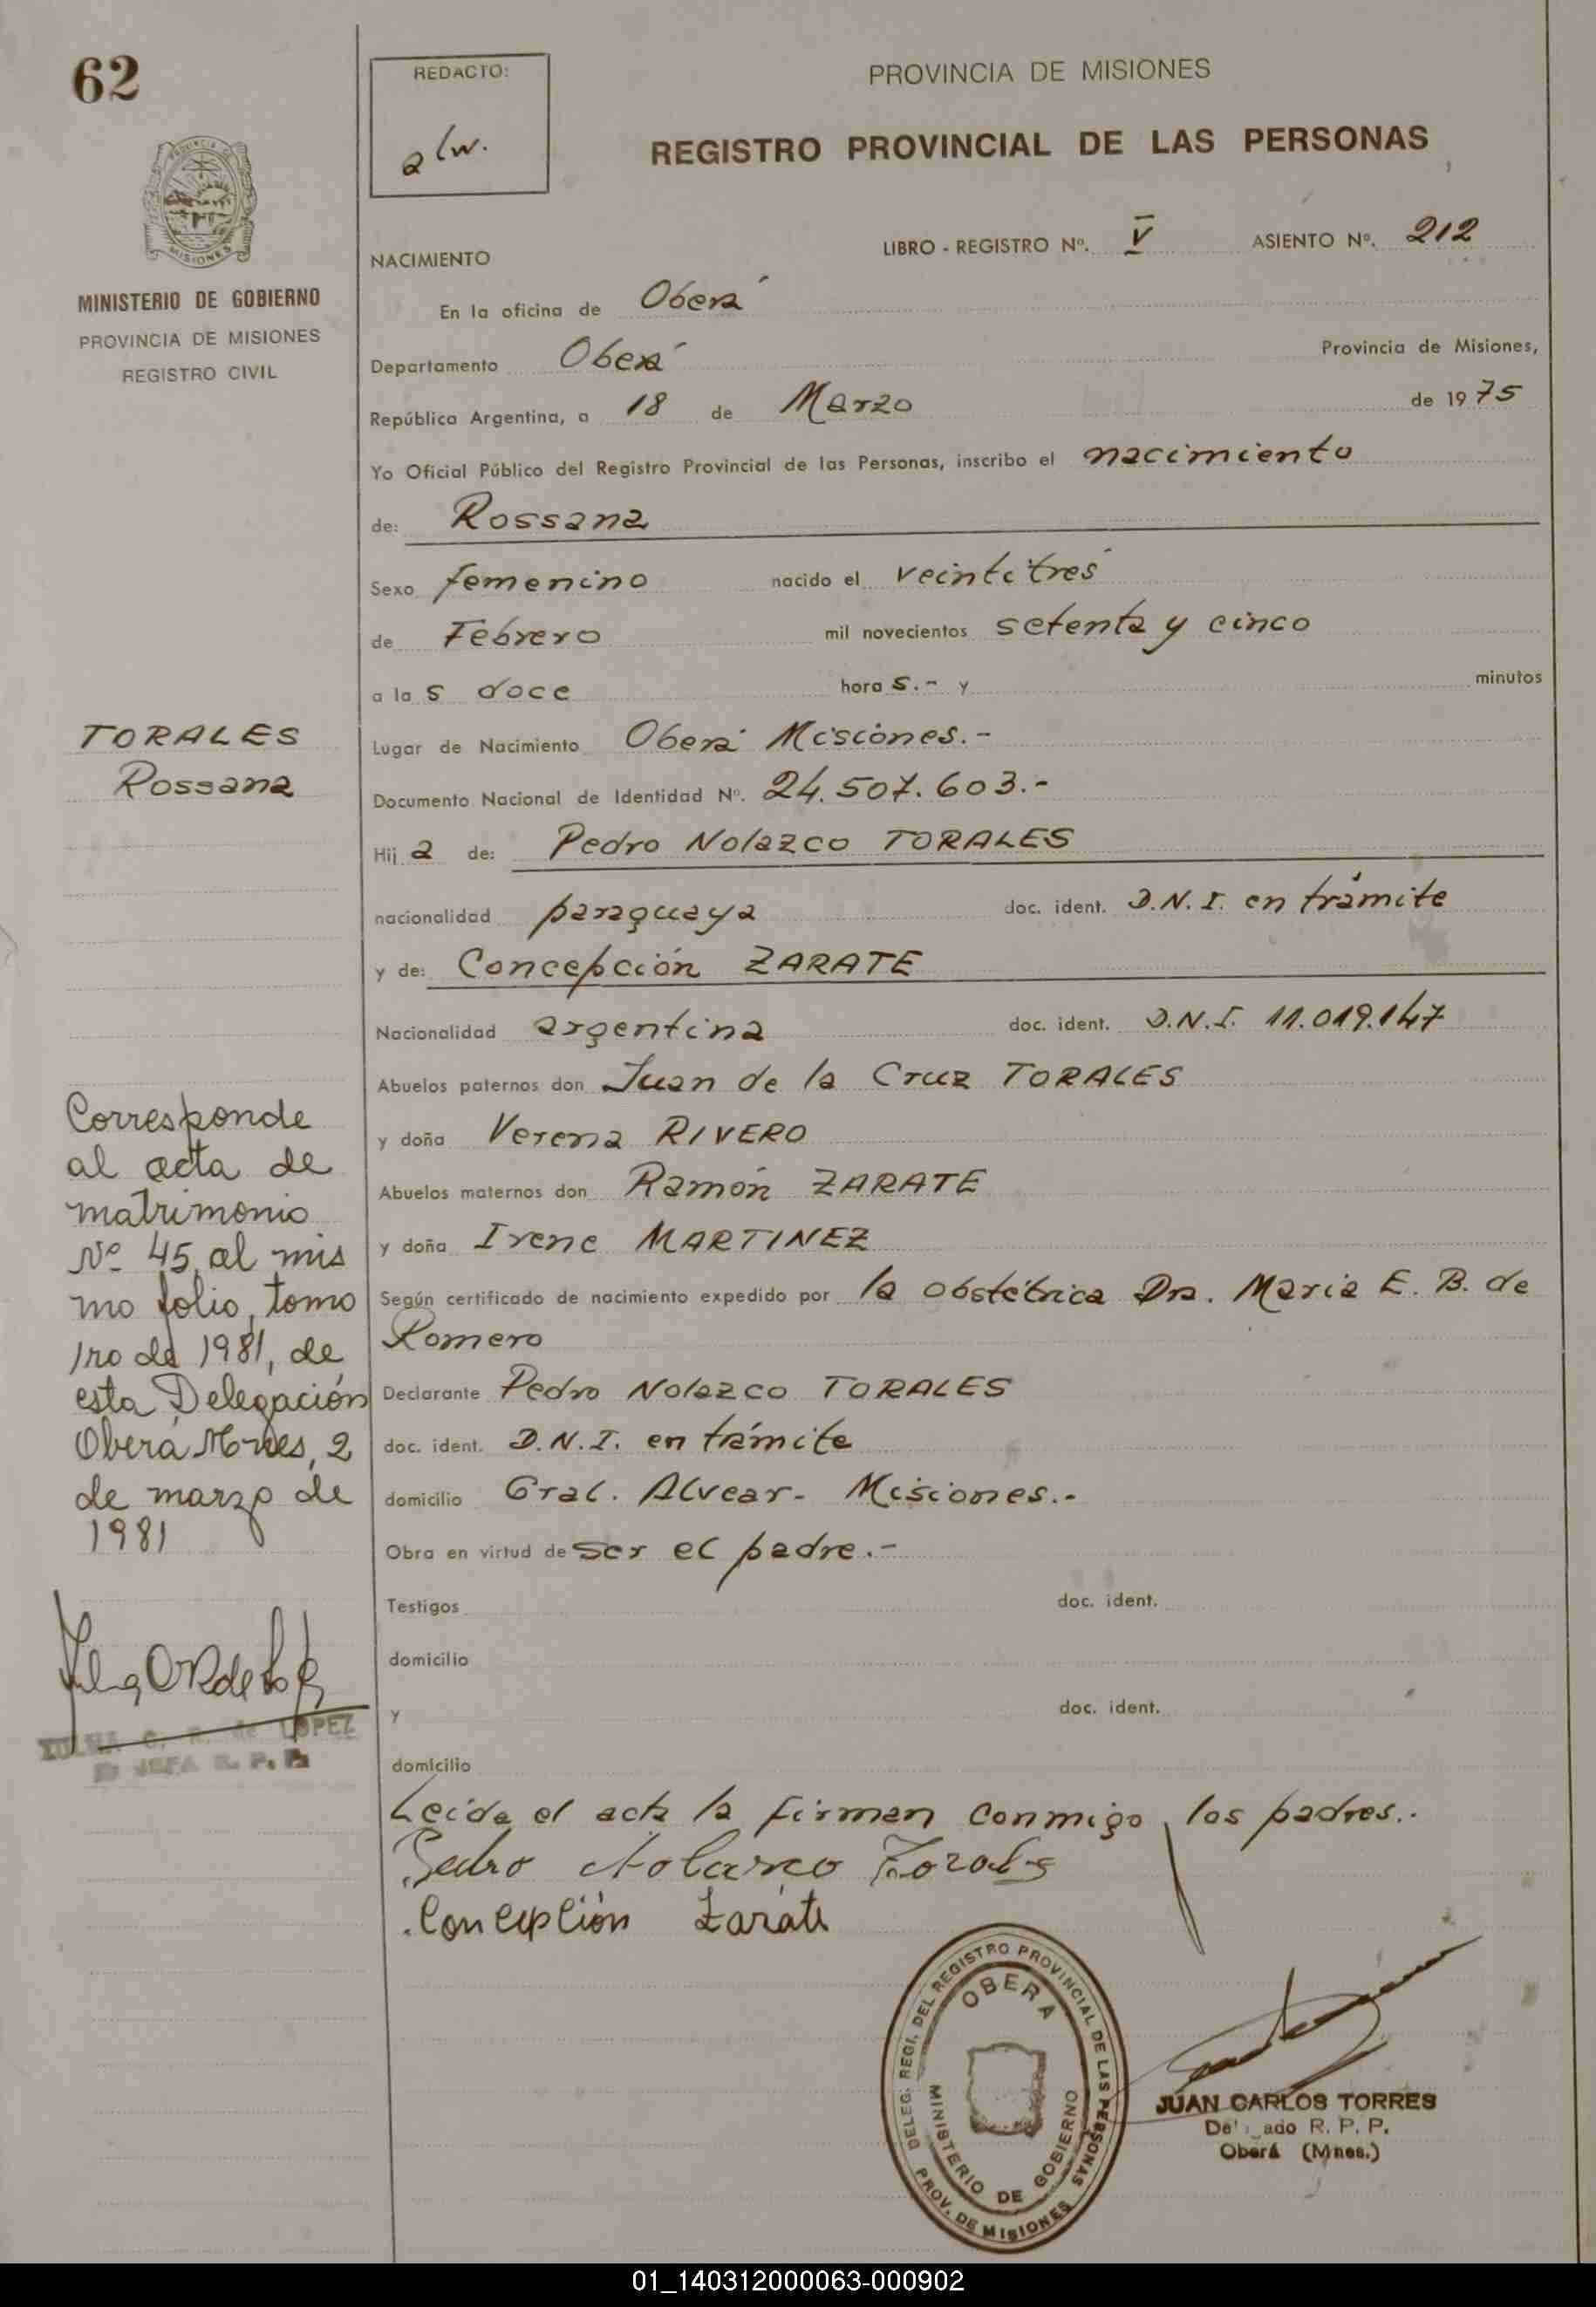 62
REDACTO:
alw.
PROVINCIA DE MISIONES
REGISTRO PROVINCIAL DE LAS PERSONAS
PROVINCIA DE
MISIONES
MINISTERIO DE GOBIERNO
PROVINCIA DE MISIONES
REGISTRO CIVIL
LIBRO - REGISTRO Nº. V ASIENTO Nº. 212
NACIMIENTO
En la oficina de Oberá
Departamento Oberá Provincia de Misiones,
República Argentina, a 18 de Marzo de 1975
Yo Oficial Público del Registro Provincial de las Personas, inscribo el nacimiento
de: Rossana
Sexo femenino nacido el veintitrés
de Febrero mil novecientos setenta y cinco
a las doce horas.- y minutos
Lugar de Nacimiento Oberá Misiones.-
Documento Nacional de Identidad Nº. 24.507.603.-
Hija de: Pedro Nolazco TORALES
nacionalidad paraguaya doc. ident. D.N.I. en trámite
y de: Concepción ZARATE
Nacionalidad argentina doc. ident. D.N.I. 11.019.147
Abuelos paternos don Juan de la Cruz TORALES
y doña Verena RIVERO
Abuelos maternos don Ramón ZARATE
y doña Irene MARTINEZ
Según certificado de nacimiento expedido por la obstétrica Dra. Maria E. B. de
Romero
Declarante Pedro Nolazco TORALES
doc. ident. D.N.I. en trámite
domicilio Gral. Alvear- Misiones.-
Obra en virtud de ser el padre.-
Testigos doc. ident.
domicilio
y doc. ident.
domicilio
Leida el acta la firman conmigo, los padres..
Pedro Nolasco Torales
Concepción Zaráte
TORALES
Rossana
Corresponde
al acta de
matrimonio
Nº 45, al mis
mo folio, tomo
1ro de 1981, de
esta Delegación
Oberá Mnes, 2
de marzo de
1981
C. R. de LOPEZ
JEFA R. P. P.
DELEG. REGI. DEL REGISTRO PROVINCIAL DE LAS PERSONAS
OBERA
MINISTERIO DE GOBIERNO
PROV. DE MISIONES
JUAN CARLOS TORRES
De' ado R. P. P.
Oberá (Mnes.)
01_140312000063-000902